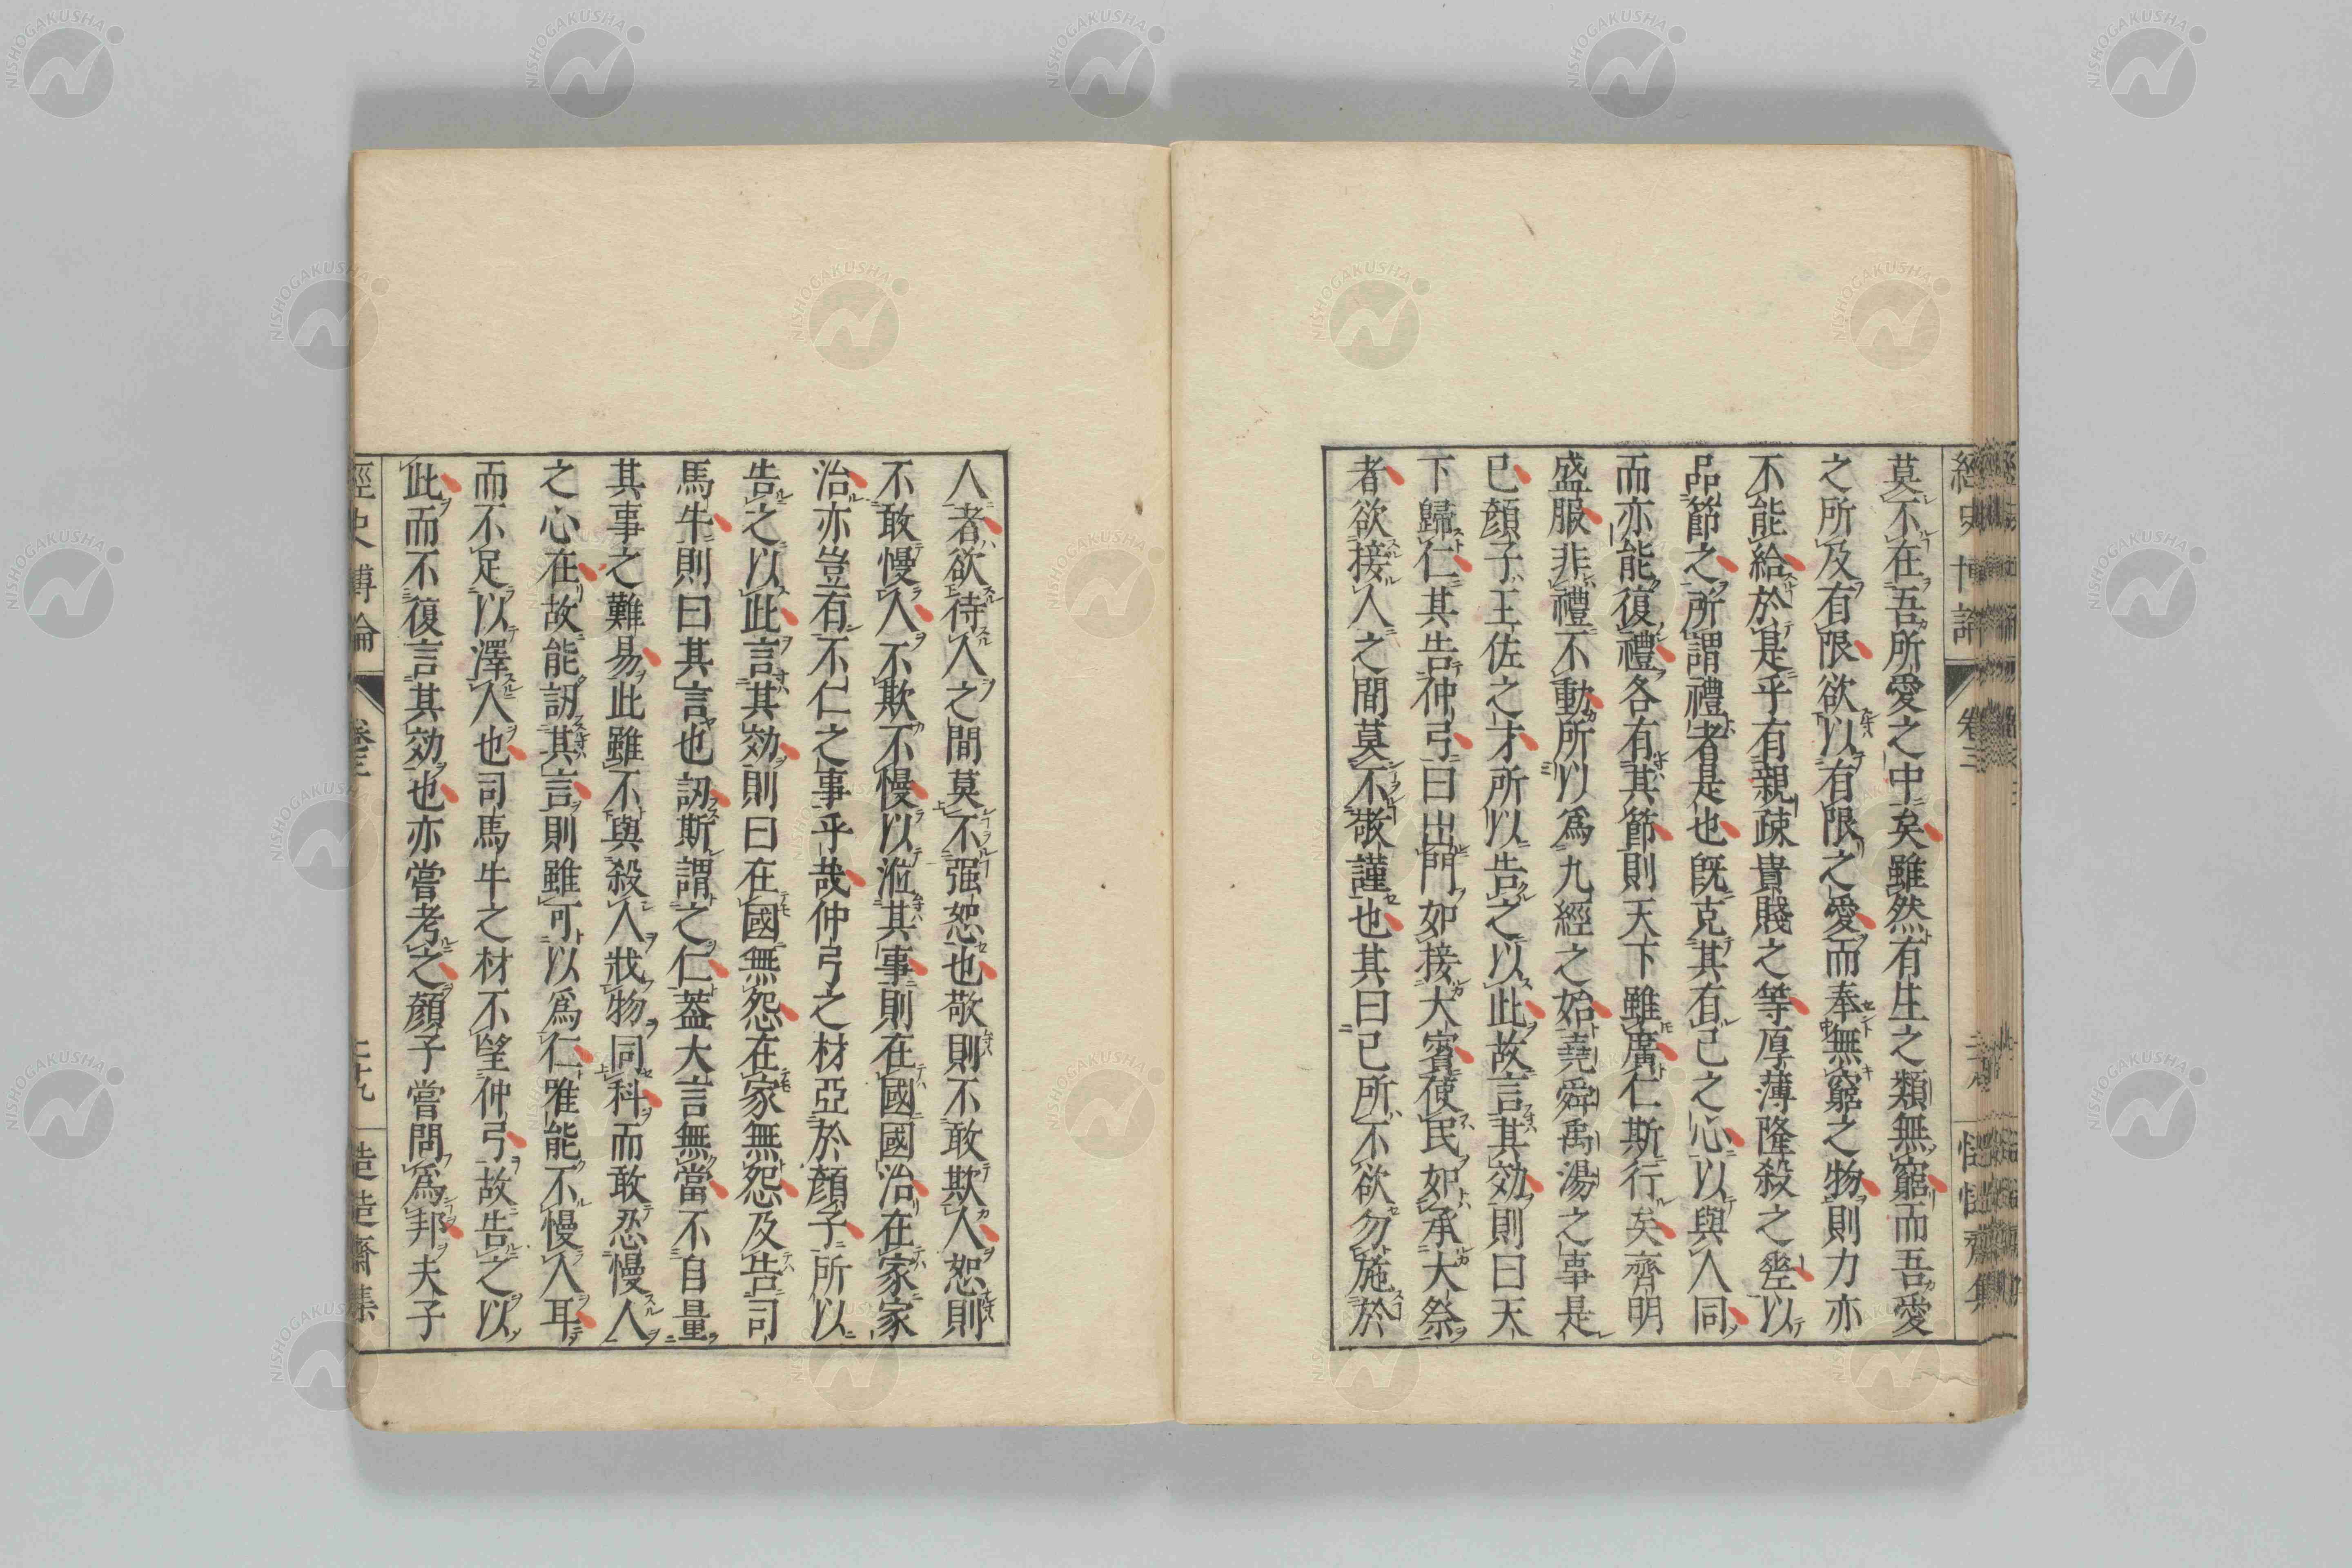 莫不在吾所愛之中矣雖然有生之類無窮而吾愛
之所及有限欲以有限之愛而奉無窮之物則力亦
不能給於是乎有親疎貴賤之等厚薄隆殺之差以
品節之所謂禮者是也既克其有己之心以與人同
而亦能復禮各有其節則天下雖廣仁斯行矣齊明
盛服非禮不動所以爲九經之始堯舜禹湯之事是
已顔子王佐之才所以告之以此故言其効則曰天
下歸仁其告仲弓曰出門如接大賓使民如承大祭
者欲接人之間莫不敬謹也其曰己所不欲勿施於
人者欲待人之間莫不强恕也敬則不敢欺人恕則
不敢慢人不欺不慢以涖其事則在國國治在家家
治亦豈有不仁之事乎哉仲弓之材亞於顔子所以
告之以此言其効則曰在國無怨在家無怨及告司
馬牛則曰其言也訒斯謂之仁蓋大言無當不自量
其事之難易此雖不與殺人戕物同科而敢忍慢人
之心在故能訒其言則雖可以爲仁雅能不慢人耳
而不足以澤人也司馬牛之材不望仲弓故告之以
此而不復言其効也亦嘗考之顔子嘗問爲邦夫子
經史博論
卷三
二十九